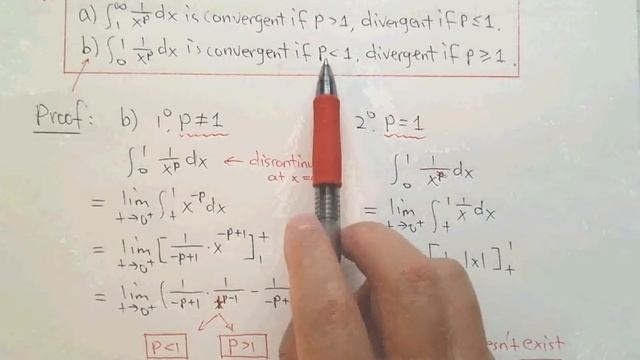 a) ∫₁^∞ 1/x^p dx is convergent if p>1, divergent if p≤1.
b) ∫₀¹ 1/x^p dx is convergent if p<1, divergent if p≥1.
Proof: b) 1° p≠1
∫₀¹ 1/x^p dx ← discontin
at x=
= lim t→0⁺ ∫ₜ¹ x^-p dx
= lim t→0⁺ [1/(-p+1) · x^(-p+1)]₁ᵗ
= lim t→0⁺ (1/(-p+1) · 1/t^(p-1) - 1/(-p+
p<1 p>1
2° p=1
∫₀¹ 1/x^p dx
= lim t→0⁺ ∫ₜ¹ 1/x dx
|x|]ₜ¹
esn't exist